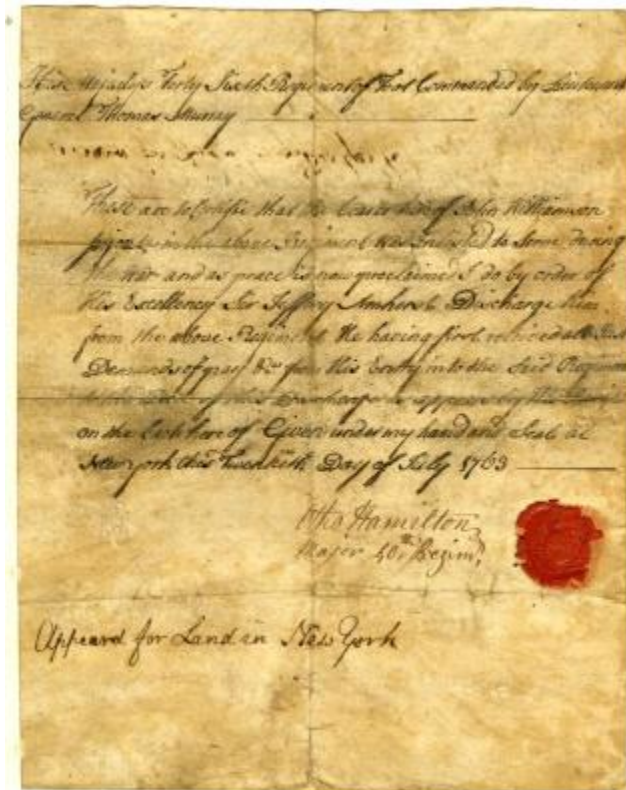 His Majestys Forty Sixth Regiment of Foot Commanded by Lieutenant
General Thomas Murray
These are to Certifie that the bearer hereof John Williamson
private in the above Regiment was Enlisted to Serve during
the war and as peace is now proclaimed I do by order of
His Excellency Sir Jeffry Amherst Discharge him
from the above Regiment He having first received all Just
Demands of pay &c from His Entry into the Said Regiment
of this Discharge as appears by the
on the back hereof Given under my hand and Seal at
New York this Twentieth Day of July 1763
Otho Hamilton
Major 40th Regimt
Appeard for Land in New York